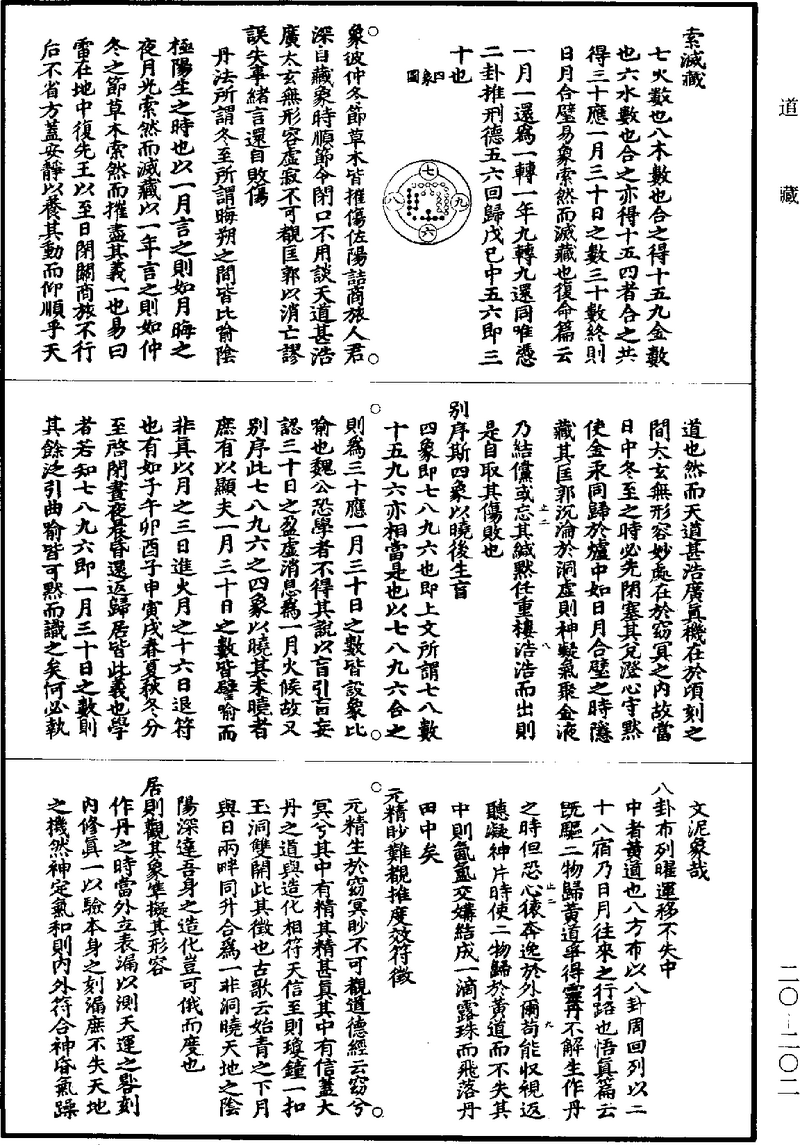 道藏
索滅藏
七火數也八木數也合之得十五九金數
也六水數也合之亦得十五四者合之共
得三十應一月三十日之數三十數終則
日月合璧易象索然而滅藏也復命篇云
一月一還為一轉一年九轉九還同唯憑
二卦推刑德五六回歸戊己中五六即三
十也
四象圖
七
八
九
六
象彼仲冬節草木皆摧傷佐陽詰商旅人君
深自藏象時順節令閉口不用談天道甚浩
廣太玄無形容虛寂不可覩匡郭以消亡謬
誤失事緒言還自敗傷
丹法所謂冬至所謂晦朔之間皆比喻陰
極陽生之時也以一月言之則如月晦之
夜月光索然而滅藏以一年言之則如仲
冬之節草木索然而摧盡其義一也易曰
雷在地中復先王以至日閉關商旅不行
后不省方蓋安靜以養其動而仰順乎天
道也然而天道甚浩廣真機在於頃刻之
間太玄無形容妙處在於窈冥之內故當
日中冬至之時必先閉塞其兌澄心守默
使金汞同歸於爐中如日月合璧之時隱
藏其匡郭沉淪於洞虛則神凝氣聚金液
乃結儻或忘其緘默任重樓浩浩而出則
是自取其傷敗也
別序斯四象以曉後生盲
四象即七八九六也即上文所謂七八數
十五九六亦相當是也以七八九六合之
則為三十應一月三十日之數皆設象比
喻也魏公恐學者不得其說以盲引盲妄
認三十日之盈虛消息為一月火候故又
別序此七八九六之四象以曉其未曉者
庶有以顯夫一月三十日之數皆譬喻而
非真以月之三日進火月之十六日退符
也有如子午卯酉子申寅戌春夏秋冬分
至啓閉晝夜晨昏還返歸居皆此義也學
者若知七八九六即一月三十日之數則
其餘泛引曲喻皆可默而識之矣何必執
文泥象哉
八卦布列曜運移不失中
中者黃道也八方布以八卦周回列以二
十八宿乃日月往來之行路也悟真篇云
既驅二物歸黃道爭得靈丹不解生作丹
之時但恐心猿奔逸於外爾苟能收視返
聽凝神片時使二物歸於黃道而不失其
中則氤氳交媾結成一滴露珠而飛落丹
田中矣
元精眇難覩推度效符徵
元精生於窈冥眇不可覩道德經云窈兮
冥兮其中有精其精甚真其中有信蓋大
丹之道與造化相符天信至則瓊鐘一扣
玉洞雙開此其徵也古歌云始青之下月
與日兩畔同升合為一非洞曉天地之陰
陽深達吾身之造化豈可俄而度也
居則觀其象準擬其形容
作丹之時當外立表漏以測天運之晷刻
內修真一以驗本身之刻漏庶不失天地
之機然神定氣和則內外符合神昏氣躁
二〇·二〇二